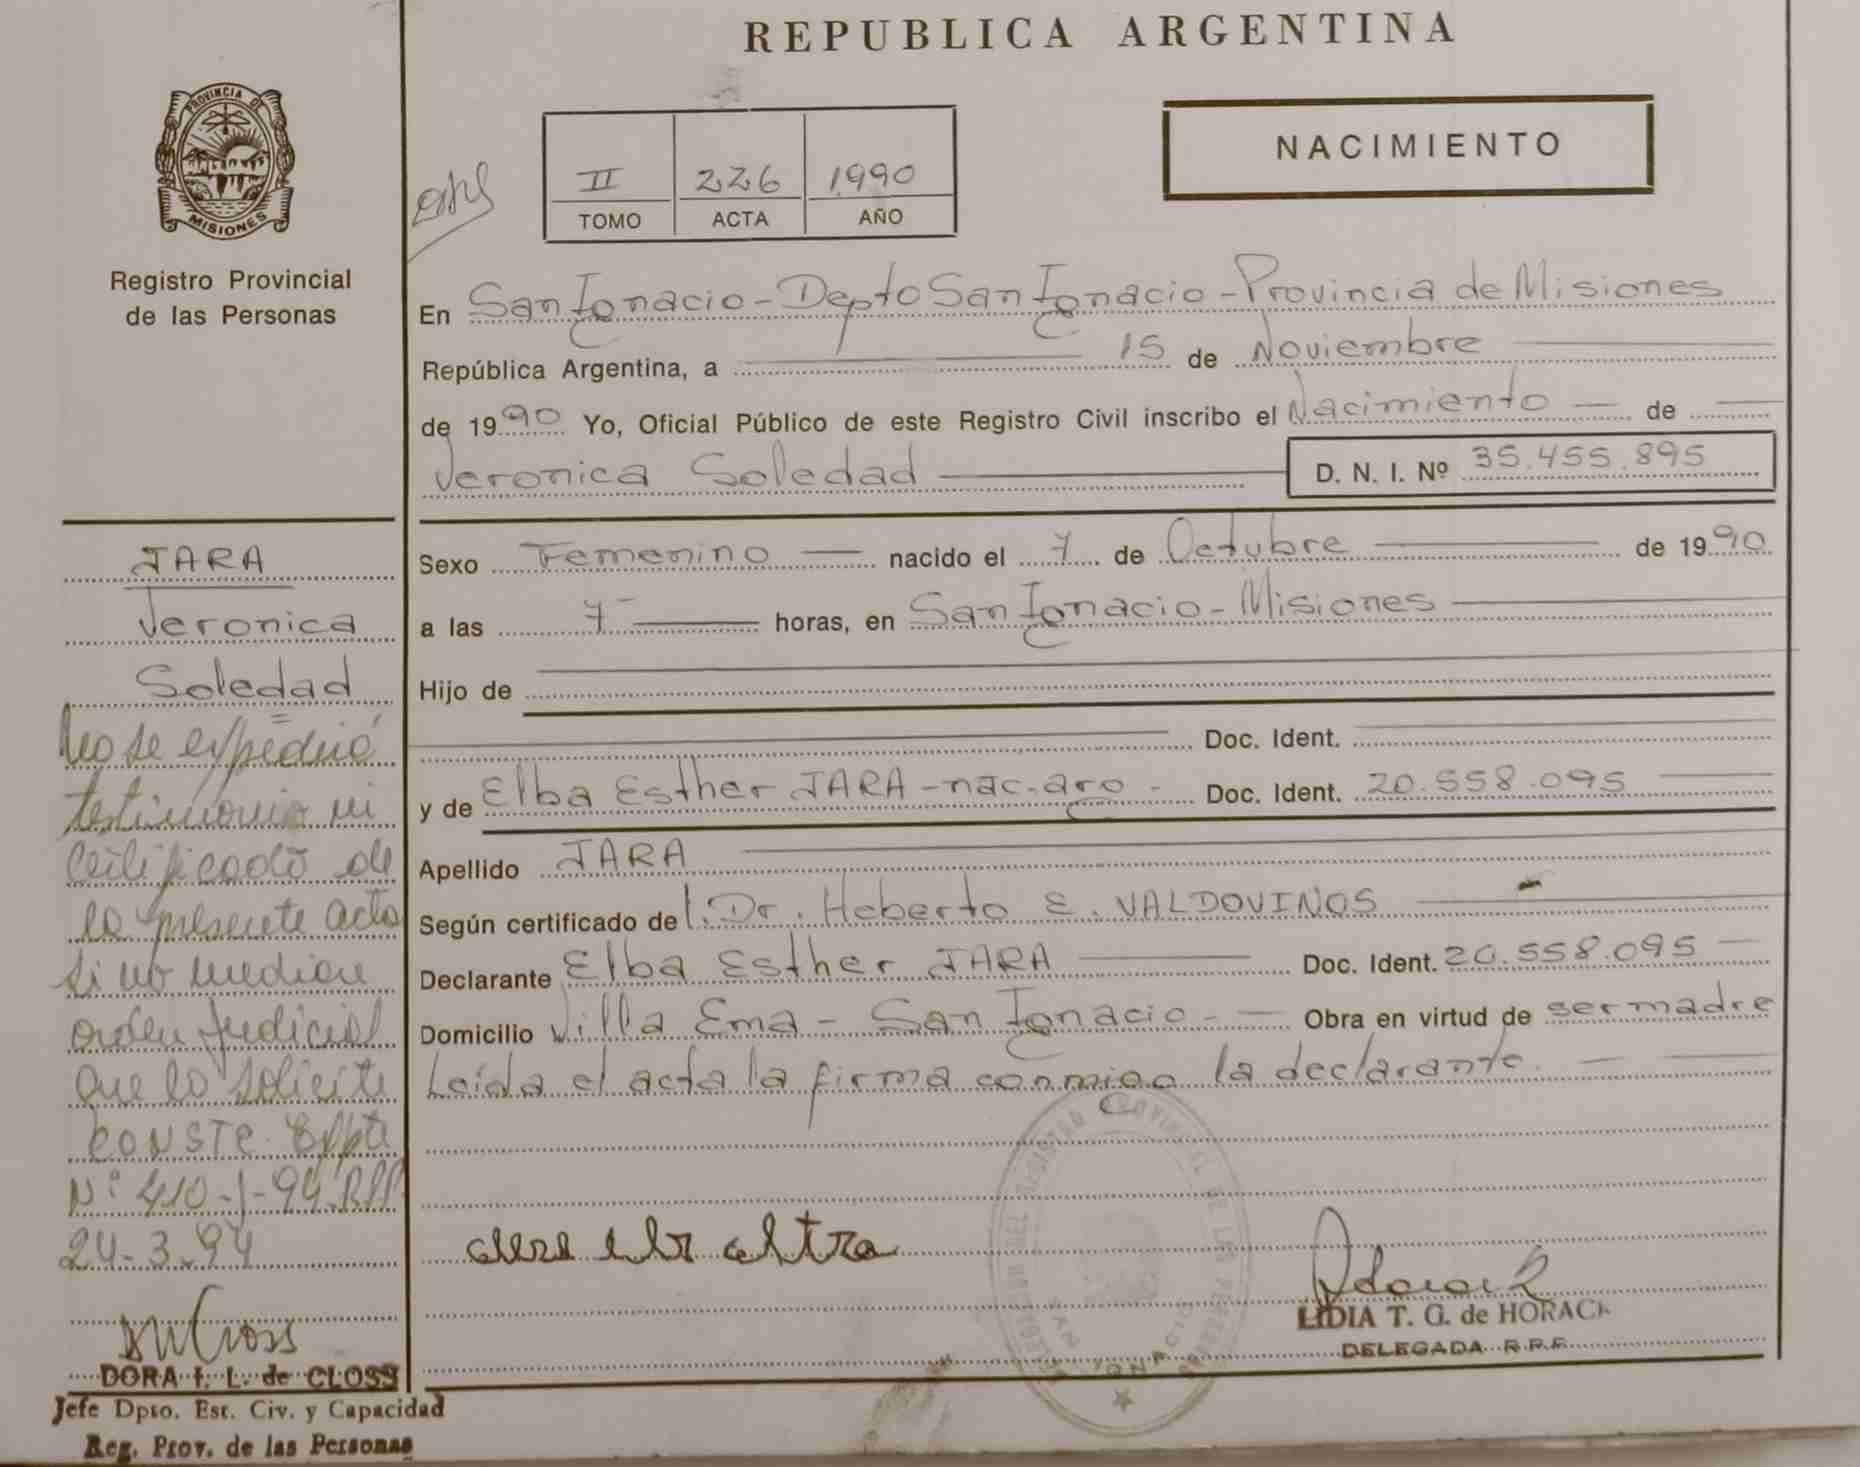 REPUBLICA ARGENTINA
PROVINCIA DE
MISIONES
Registro Provincial
de las Personas
II 226 1990
TOMO ACTA AÑO
NACIMIENTO
En San Ignacio - Depto San Ignacio - Provincia de Misiones
República Argentina, a 15 de Noviembre
de 1990 Yo, Oficial Público de este Registro Civil inscribo el Nacimiento de
Veronica Soledad D. N. I. Nº 35.455.895
Sexo Femenino nacido el 7 de Octubre de 1990
a las 7 horas, en San Ignacio - Misiones
Hijo de
Doc. Ident.
y de Elba Esther JARA - nac. arg. Doc. Ident. 20.558.095
Apellido JARA
Según certificado del Dr. Heberto E. VALDOVINOS
Declarante Elba Esther JARA Doc. Ident. 20.558.095
Domicilio Villa Ema - San Ignacio - Obra en virtud de ser madre
Leída el acta la firma conmigo la declarante.
JARA
Veronica
Soledad
No se expedirá
testimonio ni
certificado de
la presente acta
si no media
orden judicial
que lo solicite
CONSTE. Expte
Nº 410-J-94.RPP
24-3.94
DORA I. L. de CLOSS
Jefe Dpto. Est. Civ. y Capacidad
Reg. Prov. de las Personas
REGISTRO PROVINCIAL DE LAS PERSONAS
SAN IGNACIO
LIDIA T. G. de HORACK
DELEGADA R.P.P.